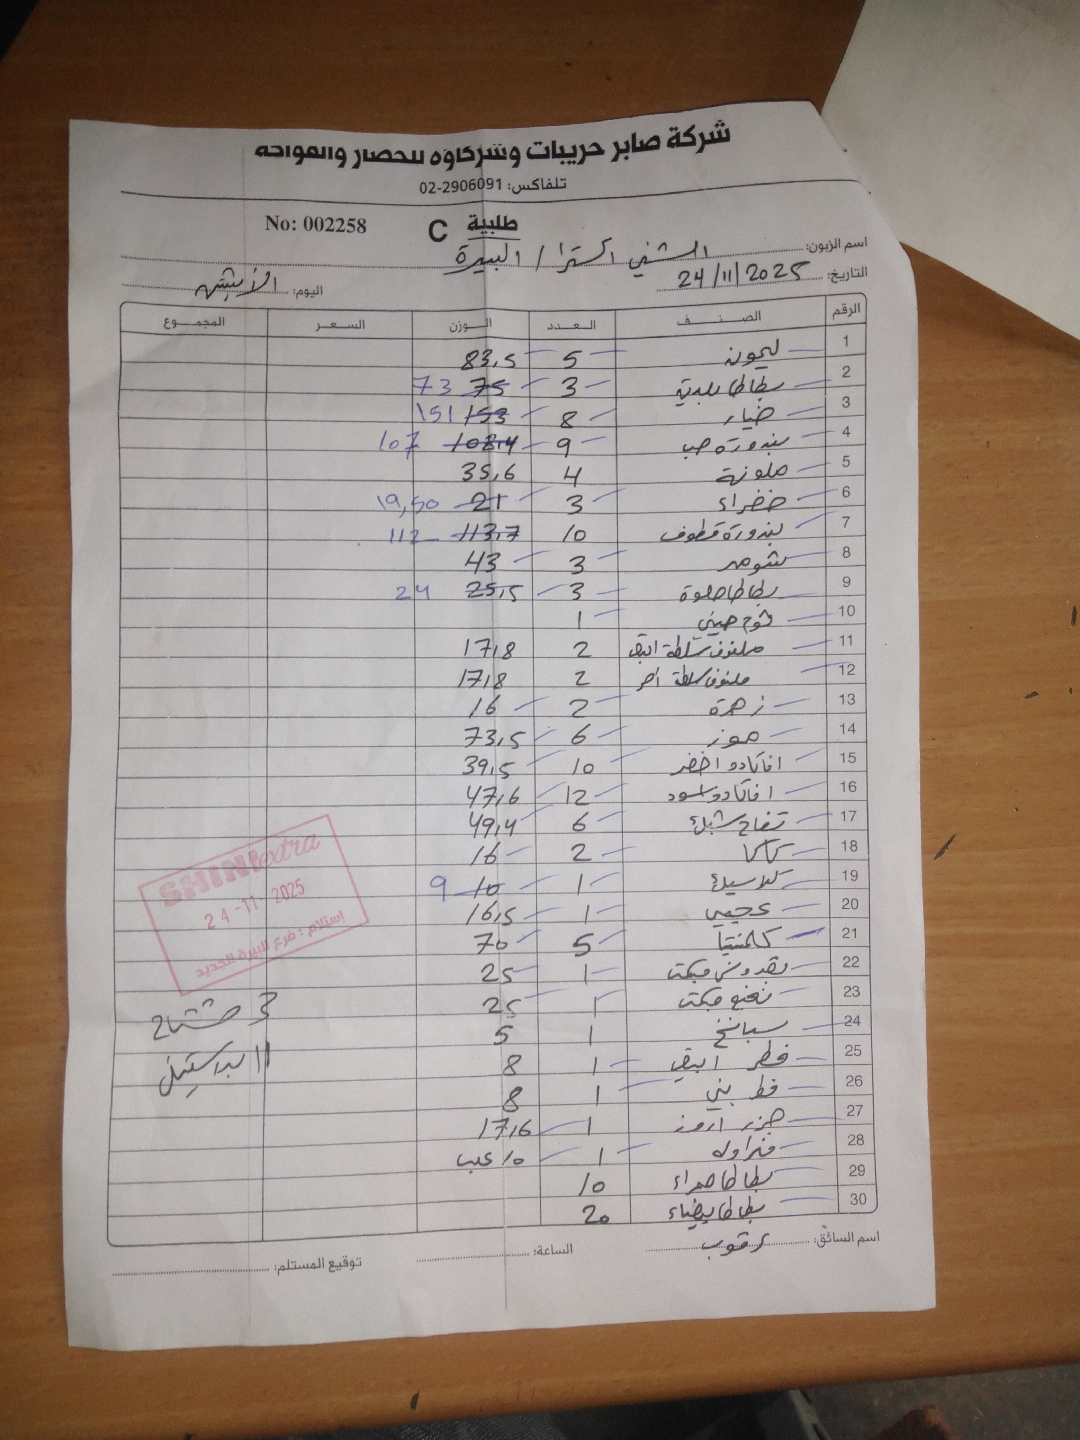 شركة صابر حريبات وشركاؤه للخضار والفواكه
تلفاكس: 02-2906091
طلبية C No: 002258
اسم الزبون: الشني اكسترا / البيرة
التاريخ: 24/11/2025 اليوم: الاثنين
الرقم الصنف العدد الوزن السعر المجموع
1 ليمون 5 83,5
2 بطاطا بلدية 3 75 73
3 خيار 8 153 151
4 بندورة حب 9 108,4 107
5 ملونة 4 35,6
6 خضراء 3 21 19,50
7 بندورة قطوف 10 113,7 112
8 شومر 3 43
9 بطاطا حلوة 3 25,5 24
10 ثوم صيني 1
11 ملفوف سلطة ابيض 2 17,8
12 ملفوف سلطة احمر 2 17,8
13 زهرة 2 16
14 موز 6 73,5
15 افاكادو اخضر 10 39,5
16 افاكادو اسود 12 47,6
17 تفاح 6 49,4
18 كاكا 2 16
19 1 10 9
20 عجمي 1 16,5
21 كلمنتينا 5 70
22 بقدونس مبكت 1 25
23 نعنع مبكت 1 25
24 سبانخ 1 5
25 فطر ابيض 1 8
26 فطر بني 1 8
27 جزر 1 17,6
28 فراولة 1 10 علب
29 بطاطا حمراء 10
30 بطاطا بيضاء 20
SHINI extra
24-11-2025
استلام: فرع البيرة الجديد
3 مشتاح
11
اسم السائق: الساعة: توقيع المستلم: